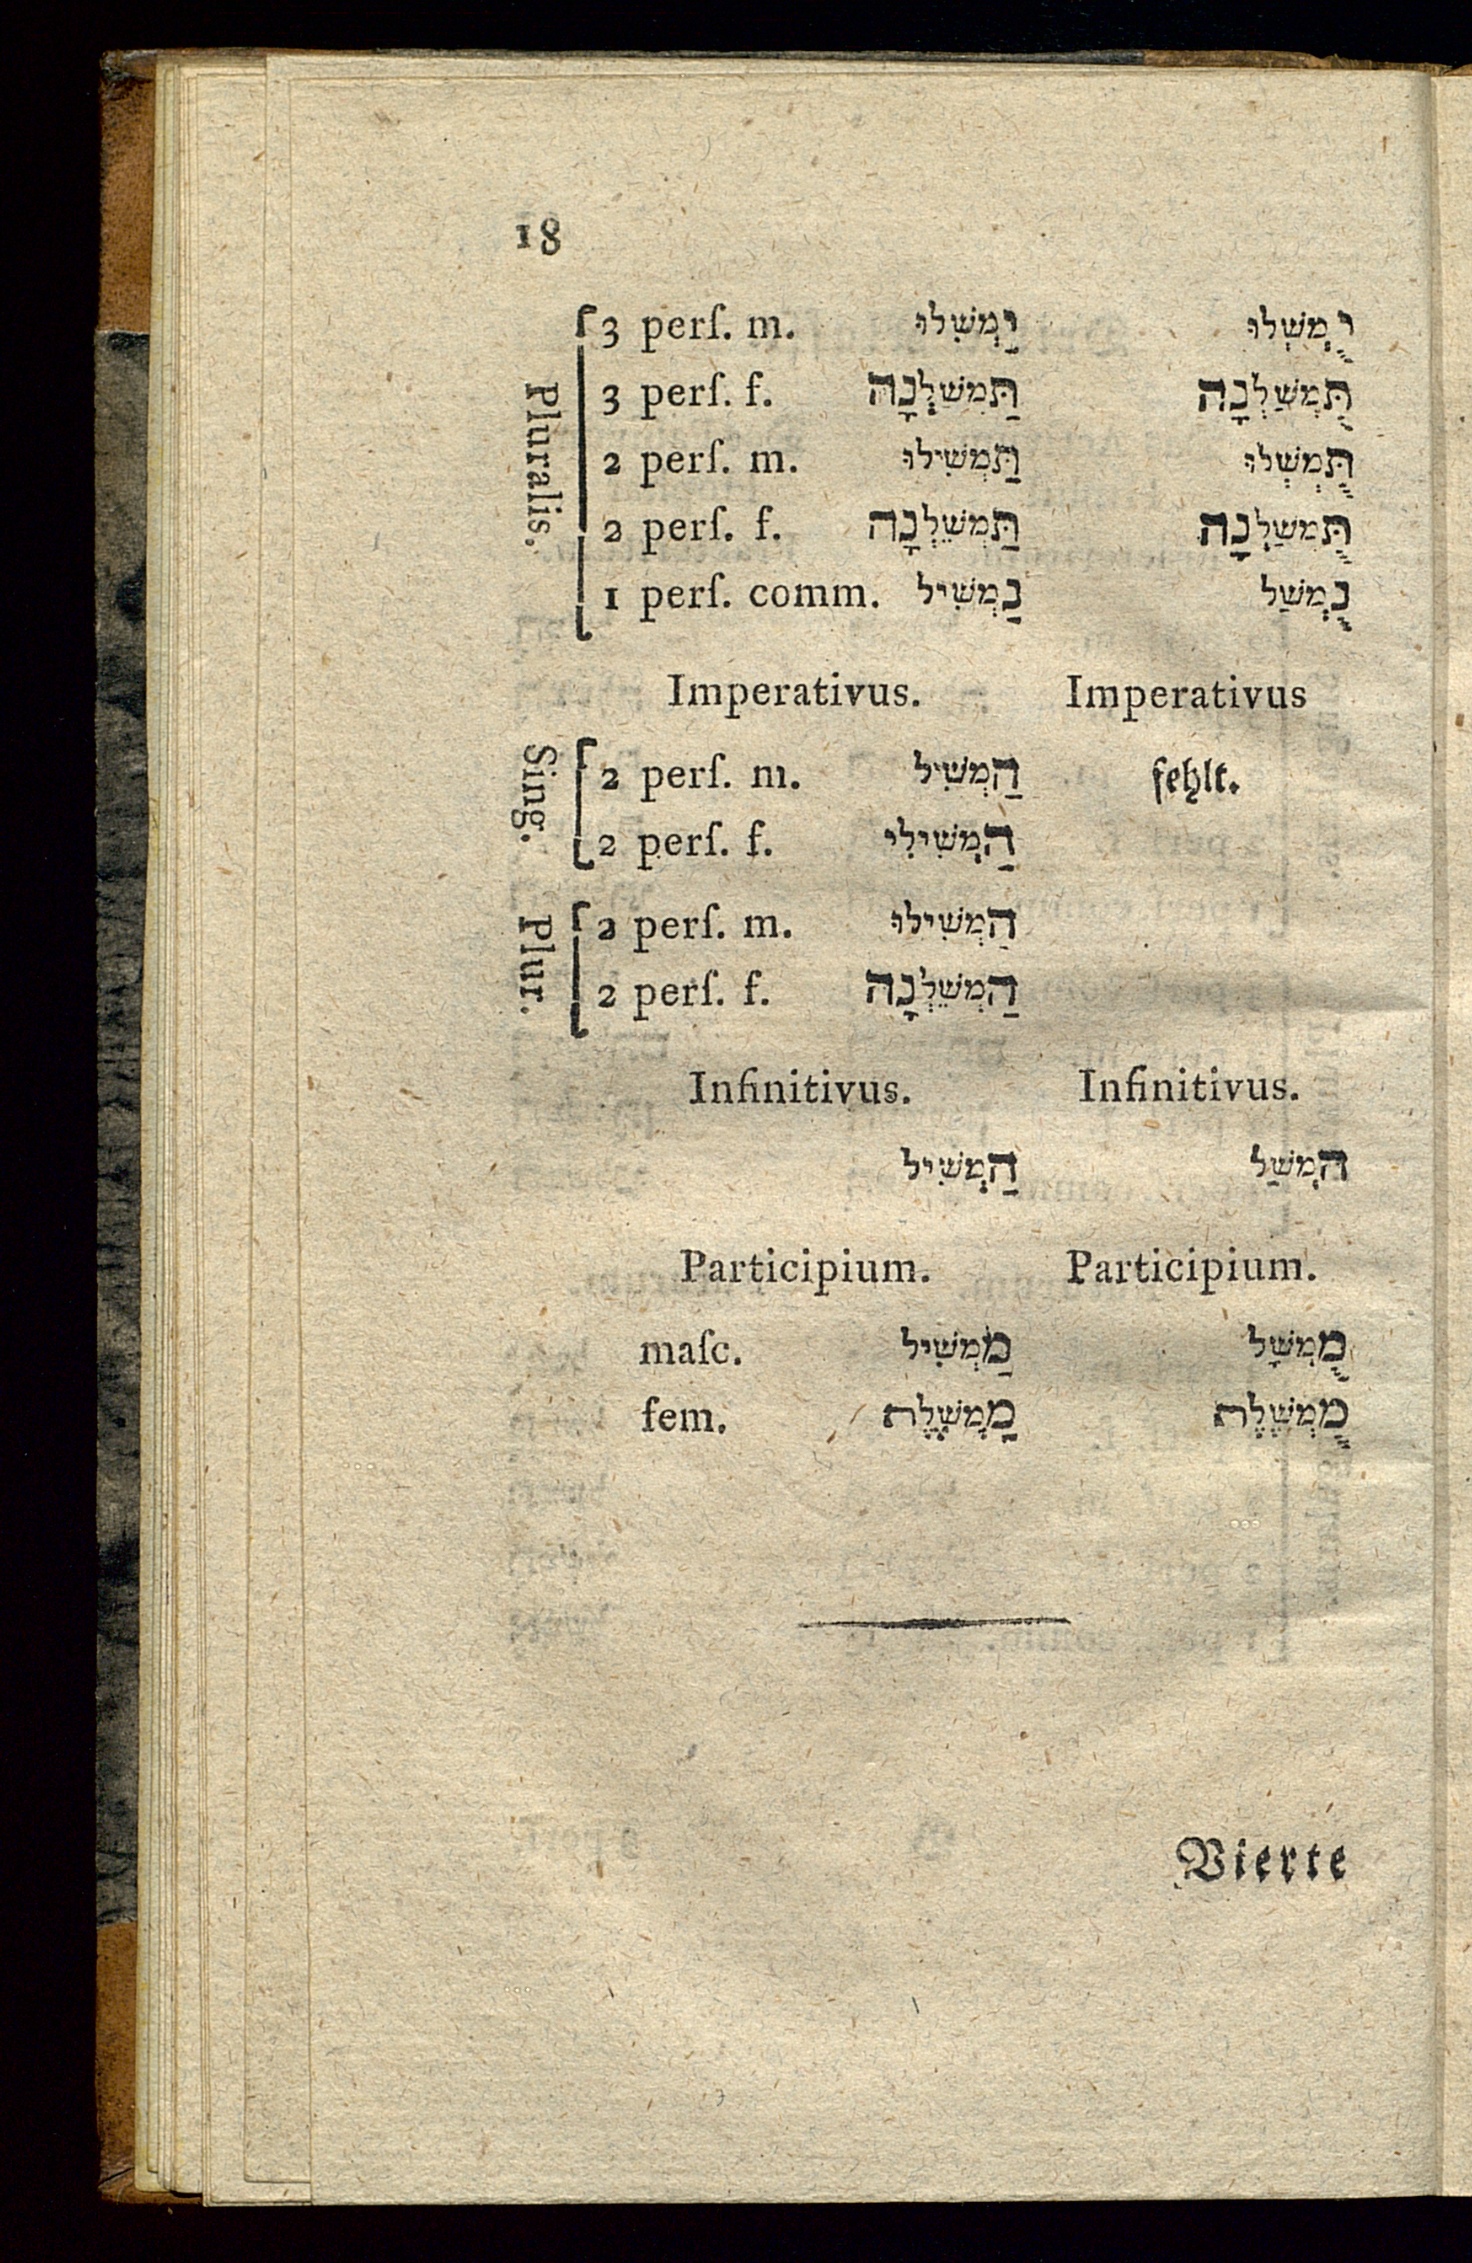 18
Pluralis.
3 perſ. m. יַמְשִׁלוּ יֻמְשְׁלוּ
3 perſ. f. תַּמְשֵׁלְנָה תֻּמְשַׁלְנָה
2 perſ. m. תַּמְשִׁילוּ תֻּמְשְׁלוּ
2 perſ. f. תַּמְשֵׁלְנָה תֻּמְשַׁלְנָה
1 perſ. comm. נַמְשִׁיל נֻמְשַׁל
Imperativus. Imperativus
Sing.
2 perſ. m. הַמְשִׁיל fehlt.
2 perſ. f. הַמְשִׁילִי
Plur.
2 perſ. m. הַמְשִׁילוּ
2 perſ. f. הַמְשֵׁלְנָה
Infinitivus. Infinitivus.
הַמְשִׁיל המְשַׁל
Participium. Participium.
maſc. מַמְשִׁיל מֻמְשָׁל
fem. מַמְשֶׁלֶת מֻמְשֶׁלֶת
Vierte